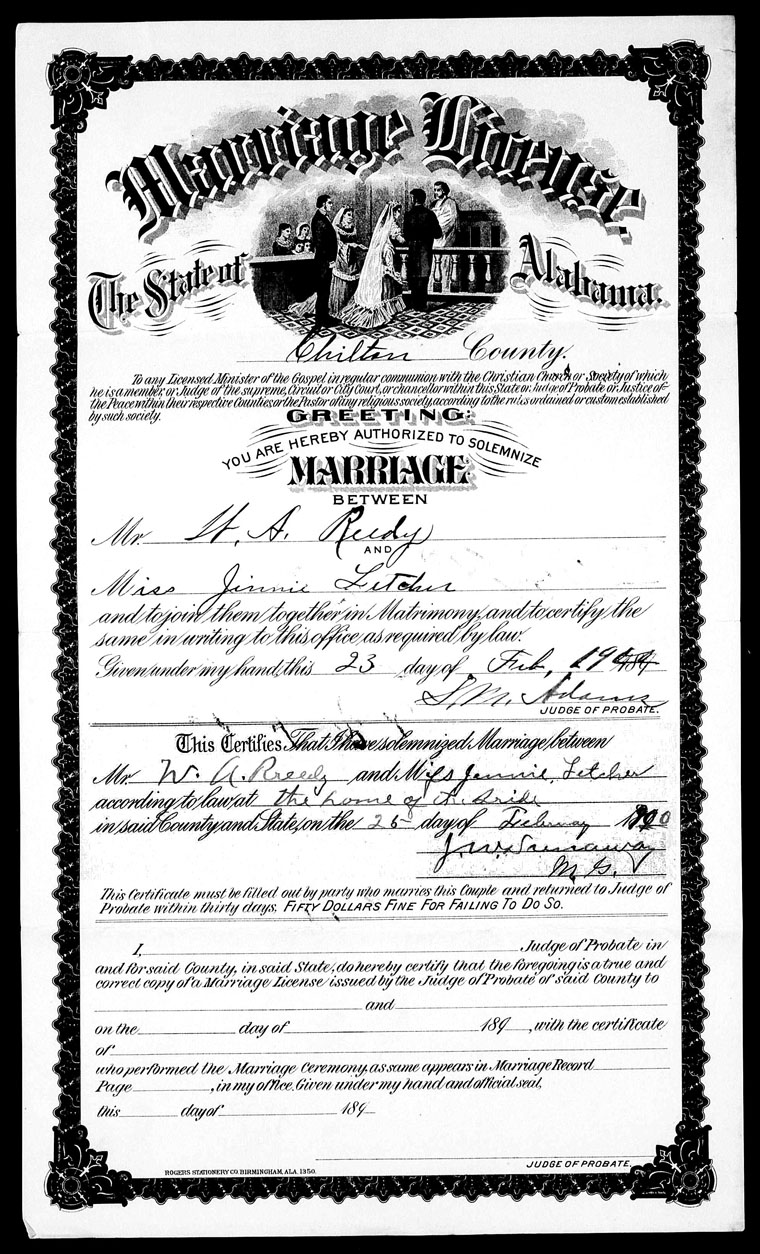 Marriage License.
The State of Alabama.
Chilton County.
To any Licensed Minister of the Gospel in regular communion with the Christian Church or Society of which
he is a member, or Judge of the supreme, Circuit or City Court, or chancellor within this State or Judge of Probate or Justice of
the Peace within their respective Counties or the Pastor of any religious society, according to the rules ordained or custom established
by such society.
GREETING:
YOU ARE HEREBY AUTHORIZED TO SOLEMNIZE
MARRIAGE
BETWEEN
Mr. W. A. Reedy
AND
Miss Jinnie Letcher
and to join them together in Matrimony, and to certify the
same in writing to this office as required by law.
Given under my hand, this 23 day of Feb, 19
S. M. Adams
JUDGE OF PROBATE.
This Certifies That I have solemnized Marriage between
Mr. W. A. Reedy and Miss Jennie Letcher
according to law, at the home of the bride
in said County and State, on the 25 day of February 1900
M. G.
This Certificate must be filled out by party who marries this Couple and returned to Judge of
Probate within thirty days, FIFTY DOLLARS FINE FOR FAILING TO DO SO.
I, Judge of Probate in
and for said County, in said State, do hereby certify that the foregoing is a true and
correct copy of a Marriage License issued by the Judge of Probate of said County to
and
on the day of 189 , with the certificate
of
who performed the Marriage Ceremony, as same appears in Marriage Record
Page , in my office. Given under my hand and official seal,
this day of 189
JUDGE OF PROBATE.
ROGERS STATIONERY CO. BIRMINGHAM, ALA. 1350.